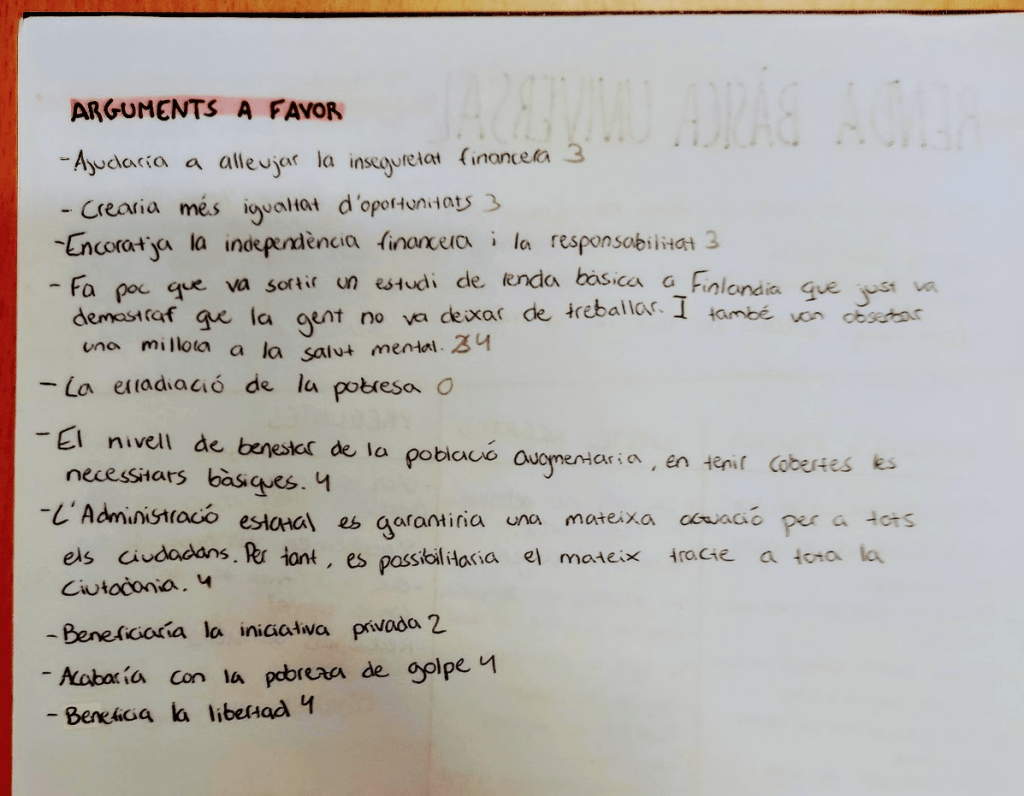 RENDA BÀSICA UNIVERSAL
ARGUMENTS A FAVOR
- Ajudaría a alleujar la inseguretat financera 3
- Crearia més igualtat d'oportunitats 3
- Encoratja la independència financera i la responsabilitat 3
- Fa poc que va sortir un estudi de renda bàsica a Finlandia que just va
demostrar que la gent no va deixar de treballar. I també van observar
una millora a la salut mental. 4
- La erradiació de la pobresa 0
- El nivell de benestar de la població augmentaria, en tenir cobertes les
necessitats bàsiques. 4
- L'Administració estatal es garantiria una mateixa actuació per a tots
els ciudadans. Per tant, es possibilitaria el mateix tracte a tota la
Ciutadania. 4
- Beneficiaría la iniciativa privada 2
- Acabaría con la pobreza de golpe 4
- Beneficia la libertad 4